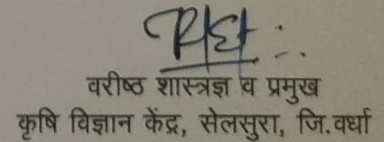 वरीष्ठ शास्त्रज्ञ व प्रमुख
कृषि विज्ञान केंद्र, सेलसुरा, जि.वर्धा